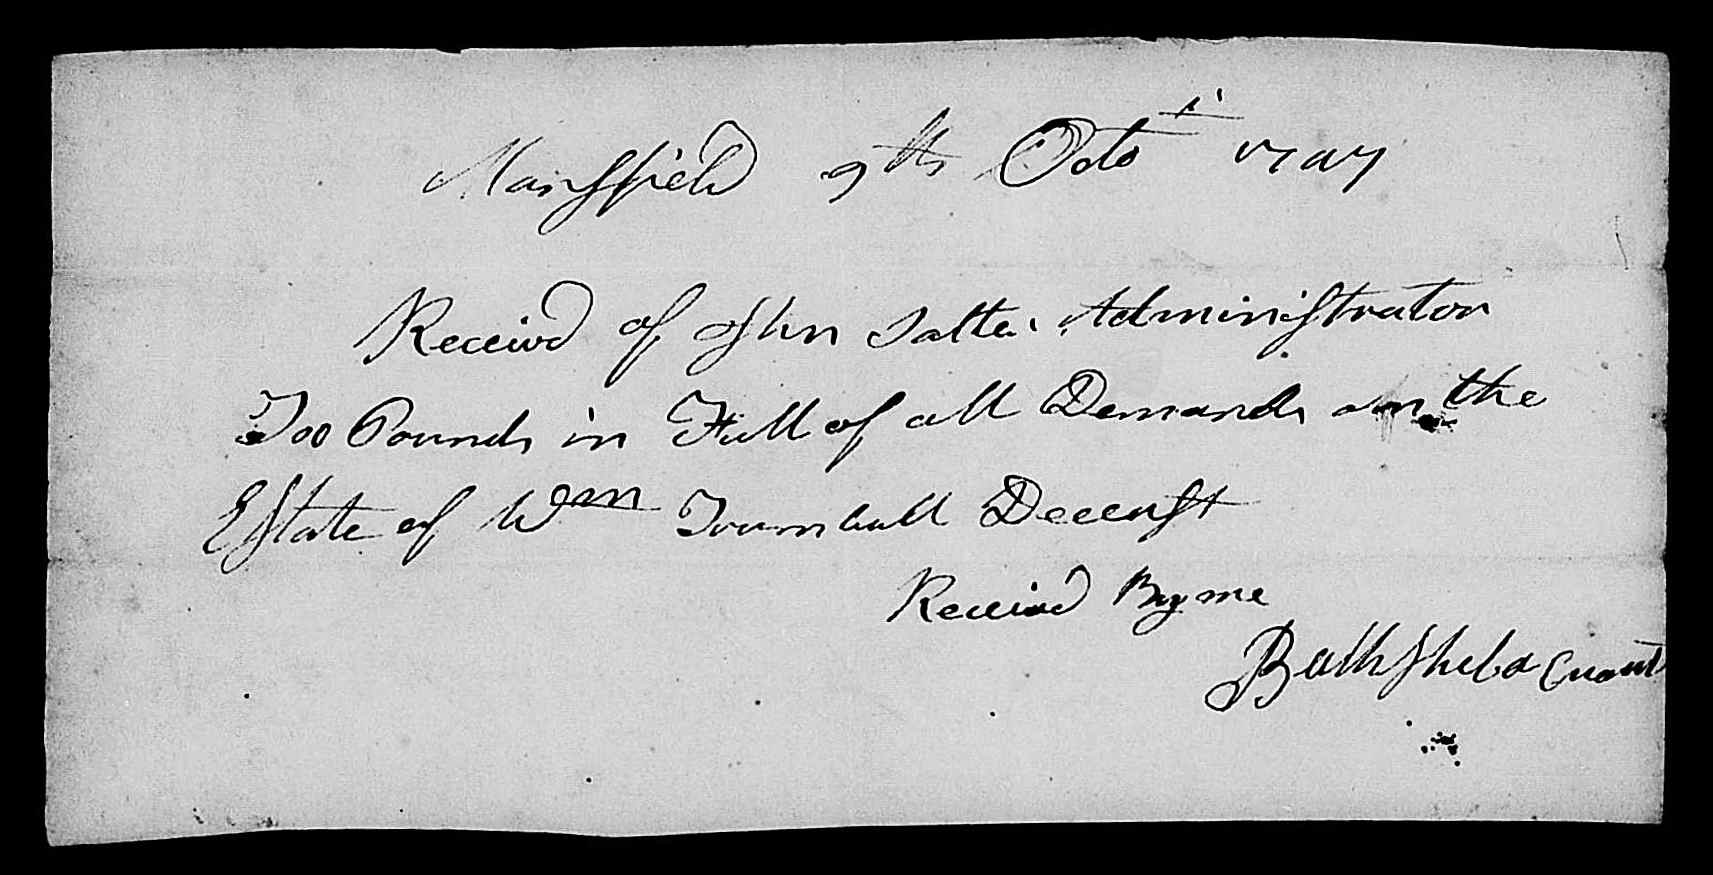 Mansfield 9th Octo.r 1787
Receivd of John Salter Administrator
Too Pounds in Full of all Demands on the
Estate of Wm Trumbull Deceast
Receivd By me
Bathsheba